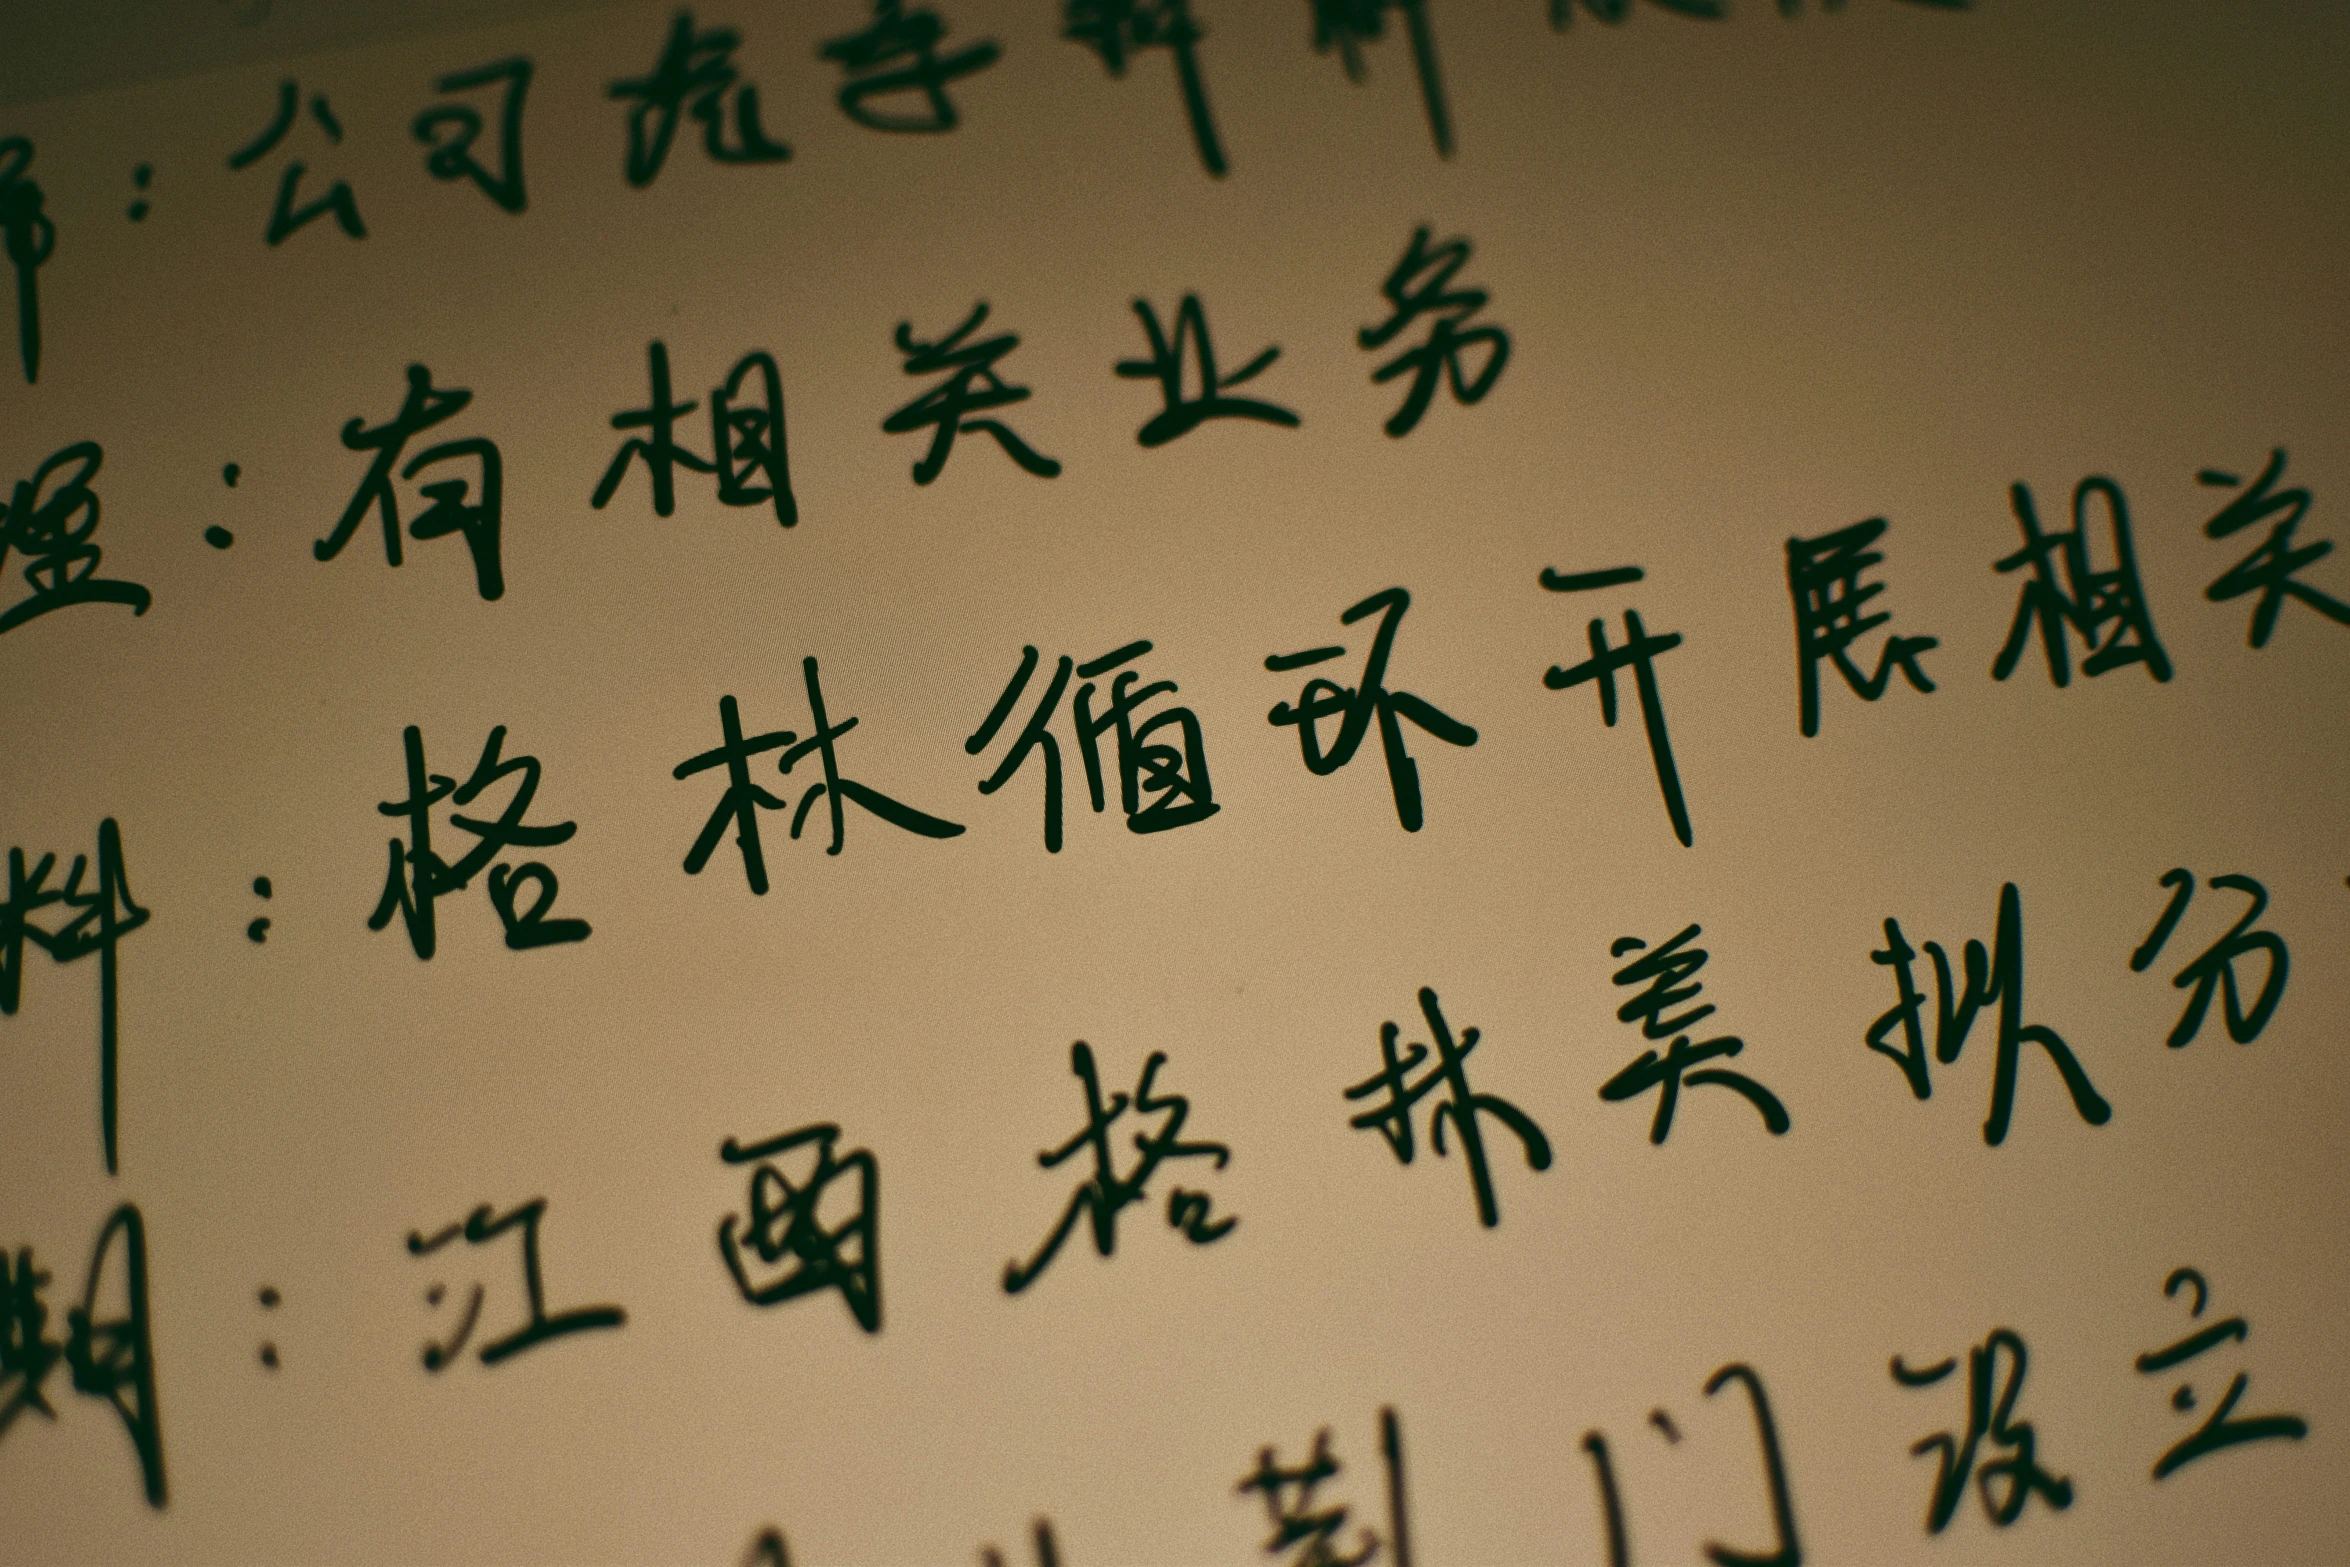 ：公司
理：有相关业务
料：格林循环开展相关
期：江西格林美拟分
荆门设立